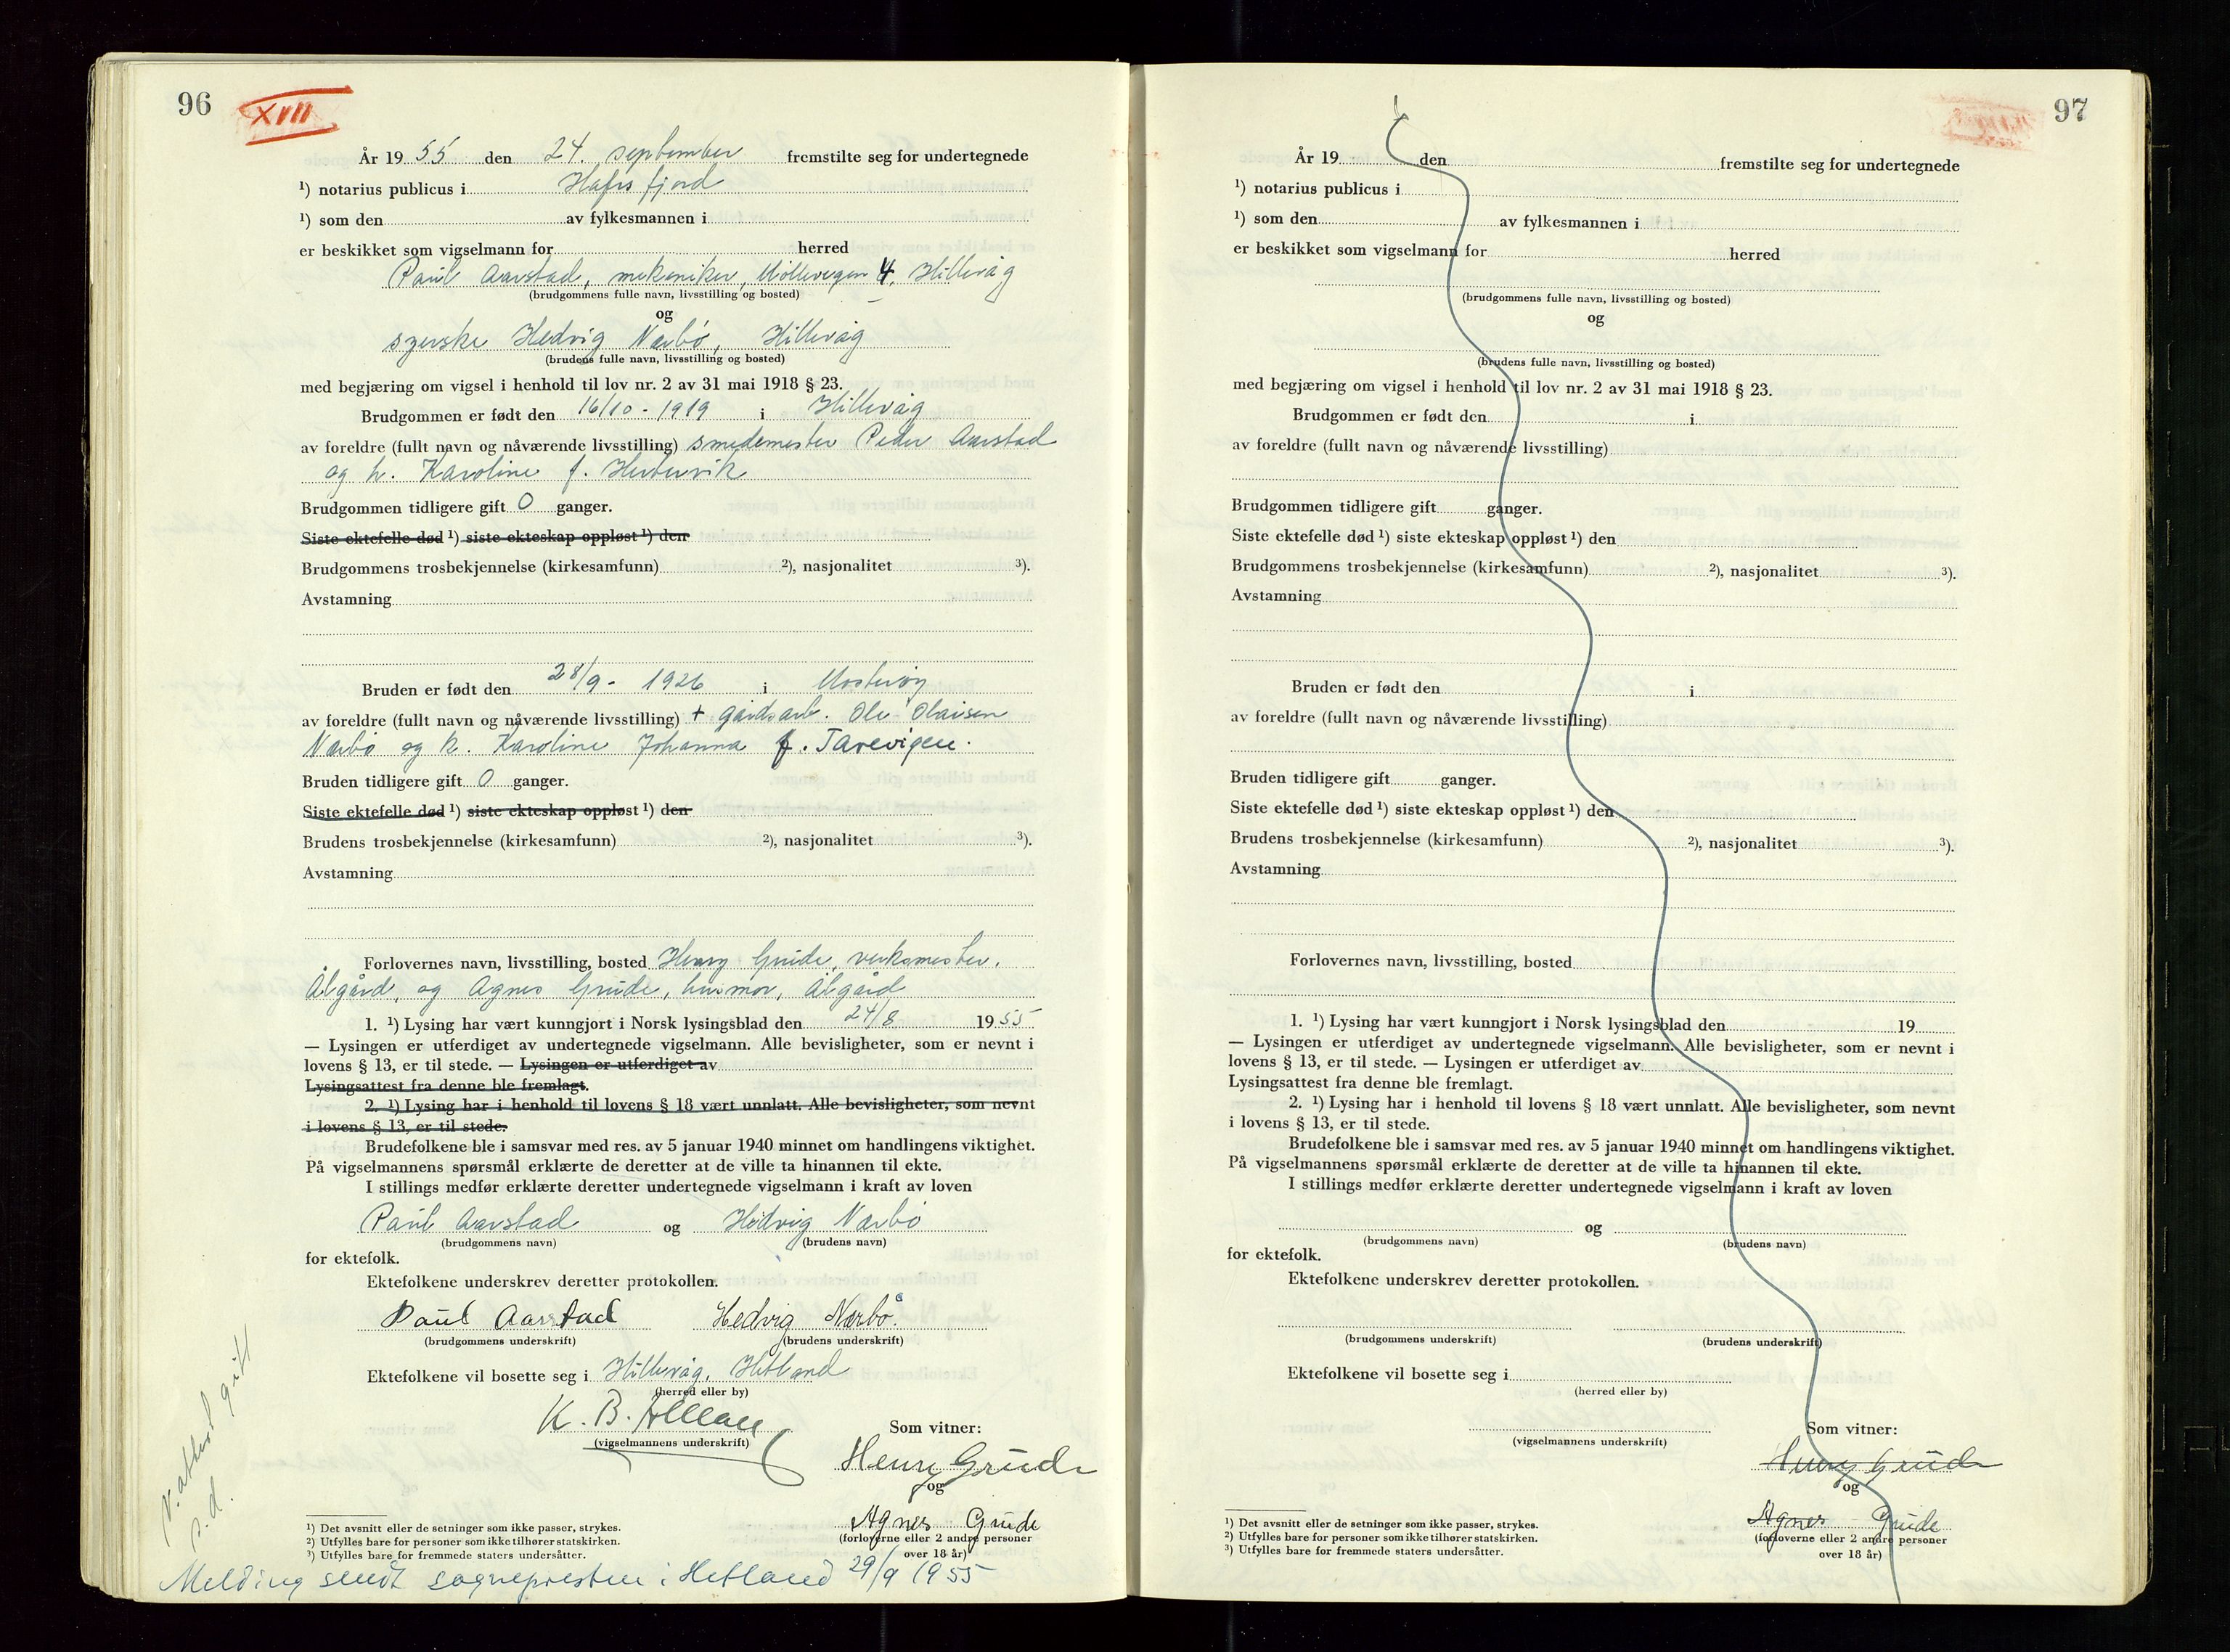 96
XVII
År 1955 den 24. september fremstilte seg for undertegnede
¹) notarius publicus i Hafrsfjord
¹) som den av fylkesmannen i
er beskikket som vigselmann for herred
Paul Aarstad, mekaniker, Møllevegen 4, Hillevåg
(brudgommens fulle navn, livsstilling og bosted)
og
syerske Hedvig Nærbö, Hillevåg
(brudens fulle navn, livsstilling og bosted)
med begjæring om vigsel i henhold til lov nr. 2 av 31 mai 1918 § 23.
Brudgommen er født den 16/10 - 1919 i Hillevåg
av foreldre (fullt navn og nåværende livsstilling) smedemester Peder Aarstad
og h. Karoline f. Hertervik
Brudgommen tidligere gift 0 ganger.
Siste ektefelle død ¹) siste ekteskap oppløst ¹) den
Brudgommens trosbekjennelse (kirkesamfunn) ²), nasjonalitet ³).
Avstamning
Bruden er født den 28/9 - 1926 i Mosterøy
av foreldre (fullt navn og nåværende livsstilling) + gårdsarb. Ole Olaisen
Nærbö og h. Karoline Johanna f. Tarevigen.
Bruden tidligere gift 0 ganger.
Siste ektefelle død ¹) siste ekteskap oppløst ¹) den
Brudens trosbekjennelse (kirkesamfunn) ²), nasjonalitet ³).
Avstamning
Forlovernes navn, livsstilling, bosted Henry Grude, verksmester,
Ålgård, og Agnes Grude, husmor, Ålgård
1. ¹) Lysing har vært kunngjort i Norsk lysingsblad den 24/8 1955
— Lysingen er utferdiget av undertegnede vigselmann. Alle bevisligheter, som er nevnt i
lovens § 13, er til stede. — Lysingen er utferdiget av
Lysingsattest fra denne ble fremlagt.
2. ¹) Lysing har i henhold til lovens § 18 vært unnlatt. Alle bevisligheter, som nevnt
i lovens § 13, er til stede.
Brudefolkene ble i samsvar med res. av 5 januar 1940 minnet om handlingens viktighet.
På vigselmannens spørsmål erklærte de deretter at de ville ta hinannen til ekte.
I stillings medfør erklærte deretter undertegnede vigselmann i kraft av loven
Paul Aarstad og Hedvig Nærbö
(brudgommens navn) (brudens navn)
for ektefolk.
Ektefolkene underskrev deretter protokollen.
Paul Aarstad Hedvig Nærbö.
(brudgommens underskrift) (brudens underskrift)
Ektefolkene vil bosette seg i Hillevåg, Hetland
(herred eller by)
K. B.
(vigselmannens underskrift)
Som vitner:
Henry Grude
og
Agnes Grude
(forloverne eller 2 andre personer
over 18 år)
V. attest gitt
s.d.
¹) Det avsnitt eller de setninger som ikke passer, strykes.
²) Utfylles bare for personer som ikke tilhører statskirken.
³) Utfylles bare for fremmede staters undersåtter.
Melding sendt sognepresten i Hetland 29/9 1955
97
År 19 den fremstilte seg for undertegnede
¹) notarius publicus i
¹) som den av fylkesmannen i
er beskikket som vigselmann for herred
(brudgommens fulle navn, livsstilling og bosted)
og
(brudens fulle navn, livsstilling og bosted)
med begjæring om vigsel i henhold til lov nr. 2 av 31 mai 1918 § 23.
Brudgommen er født den i
av foreldre (fullt navn og nåværende livsstilling)
Brudgommen tidligere gift ganger.
Siste ektefelle død ¹) siste ekteskap oppløst ¹) den
Brudgommens trosbekjennelse (kirkesamfunn) ²), nasjonalitet ³).
Avstamning
Bruden er født den i
av foreldre (fullt navn og nåværende livsstilling)
Bruden tidligere gift ganger.
Siste ektefelle død ¹) siste ekteskap oppløst ¹) den
Brudens trosbekjennelse (kirkesamfunn) ²), nasjonalitet ³).
Avstamning
Forlovernes navn, livsstilling, bosted
1. ¹) Lysing har vært kunngjort i Norsk lysingsblad den 19
— Lysingen er utferdiget av undertegnede vigselmann. Alle bevisligheter, som er nevnt i
lovens § 13, er til stede. — Lysingen er utferdiget av
Lysingsattest fra denne ble fremlagt.
2. ¹) Lysing har i henhold til lovens § 18 vært unnlatt. Alle bevisligheter, som nevnt
i lovens § 13, er til stede.
Brudefolkene ble i samsvar med res. av 5 januar 1940 minnet om handlingens viktighet.
På vigselmannens spørsmål erklærte de deretter at de ville ta hinannen til ekte.
I stillings medfør erklærte deretter undertegnede vigselmann i kraft av loven
og
(brudgommens navn) (brudens navn)
for ektefolk.
Ektefolkene underskrev deretter protokollen.
(brudgommens underskrift) (brudens underskrift)
Ektefolkene vil bosette seg i
(herred eller by)
(vigselmannens underskrift)
Som vitner:
Henry Grude
og
Agnes Grude
(forloverne eller 2 andre personer
over 18 år)
¹) Det avsnitt eller de setninger som ikke passer, strykes.
²) Utfylles bare for personer som ikke tilhører statskirken.
³) Utfylles bare for fremmede staters undersåtter.